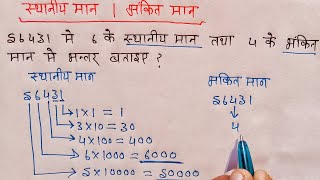 स्थानीय मान | अंकित मान
56431 में 6 के स्थानीय मान तथा 4 के अंकित
मान में अन्तर बताइए ?
स्थानीय मान अंकित मान
56431 56431
1×1 = 1 4
3×10 = 30
4×100 = 400
6×1000 = 6000
5×10000 = 50000